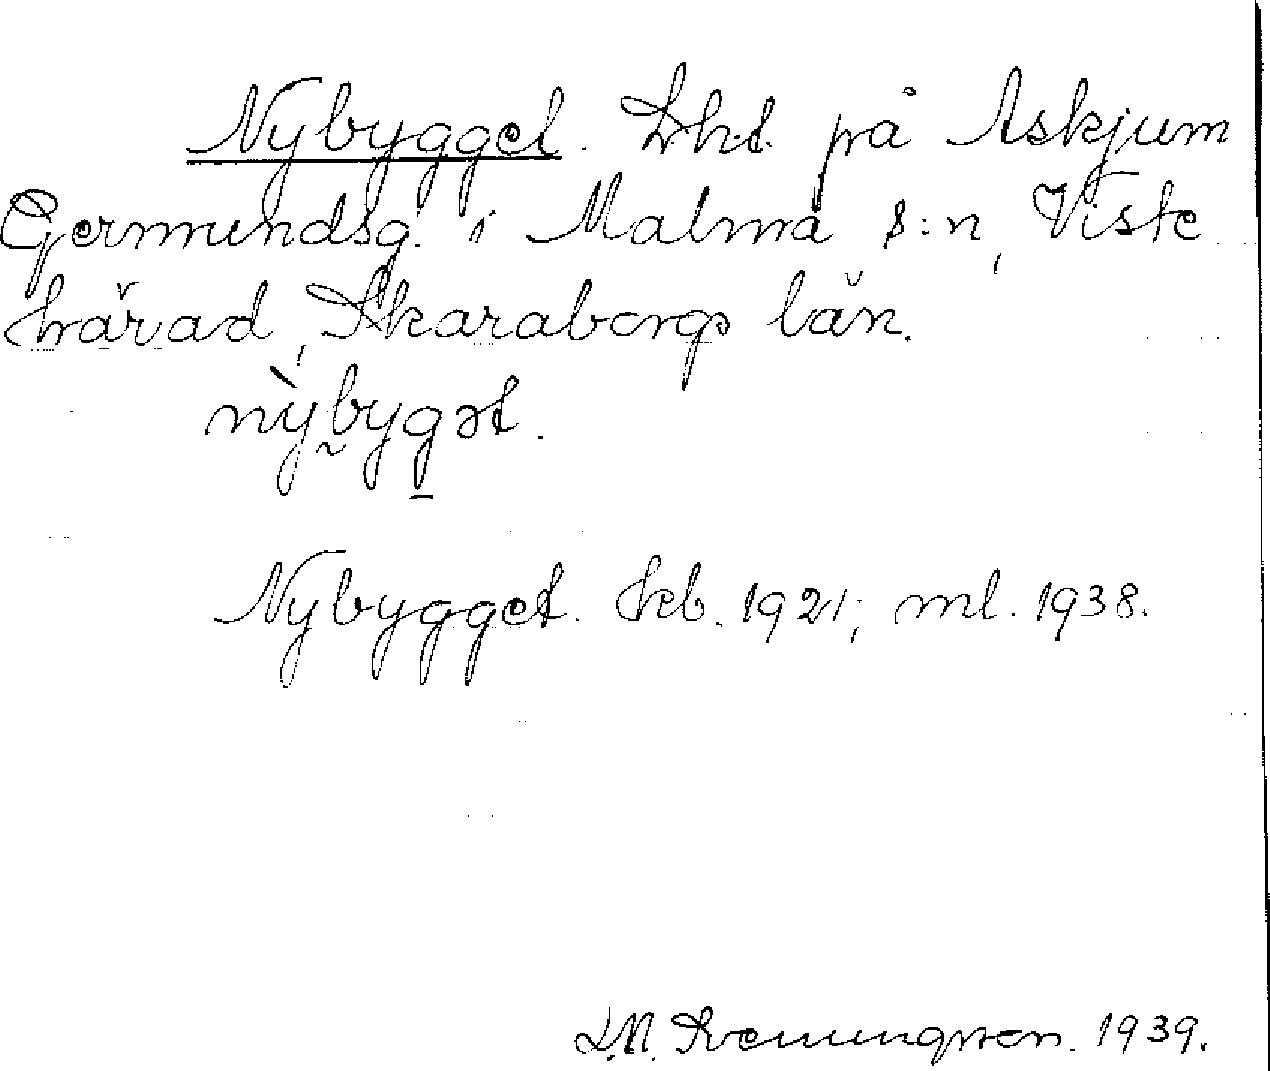 Nybygget. Lht. på Askjum
Germundsg. i Malma s:n, Viste
härad, Skaraborgs län.
nỳbygət.
Nybygget. kb. 1921; ml. 1938.
1939.